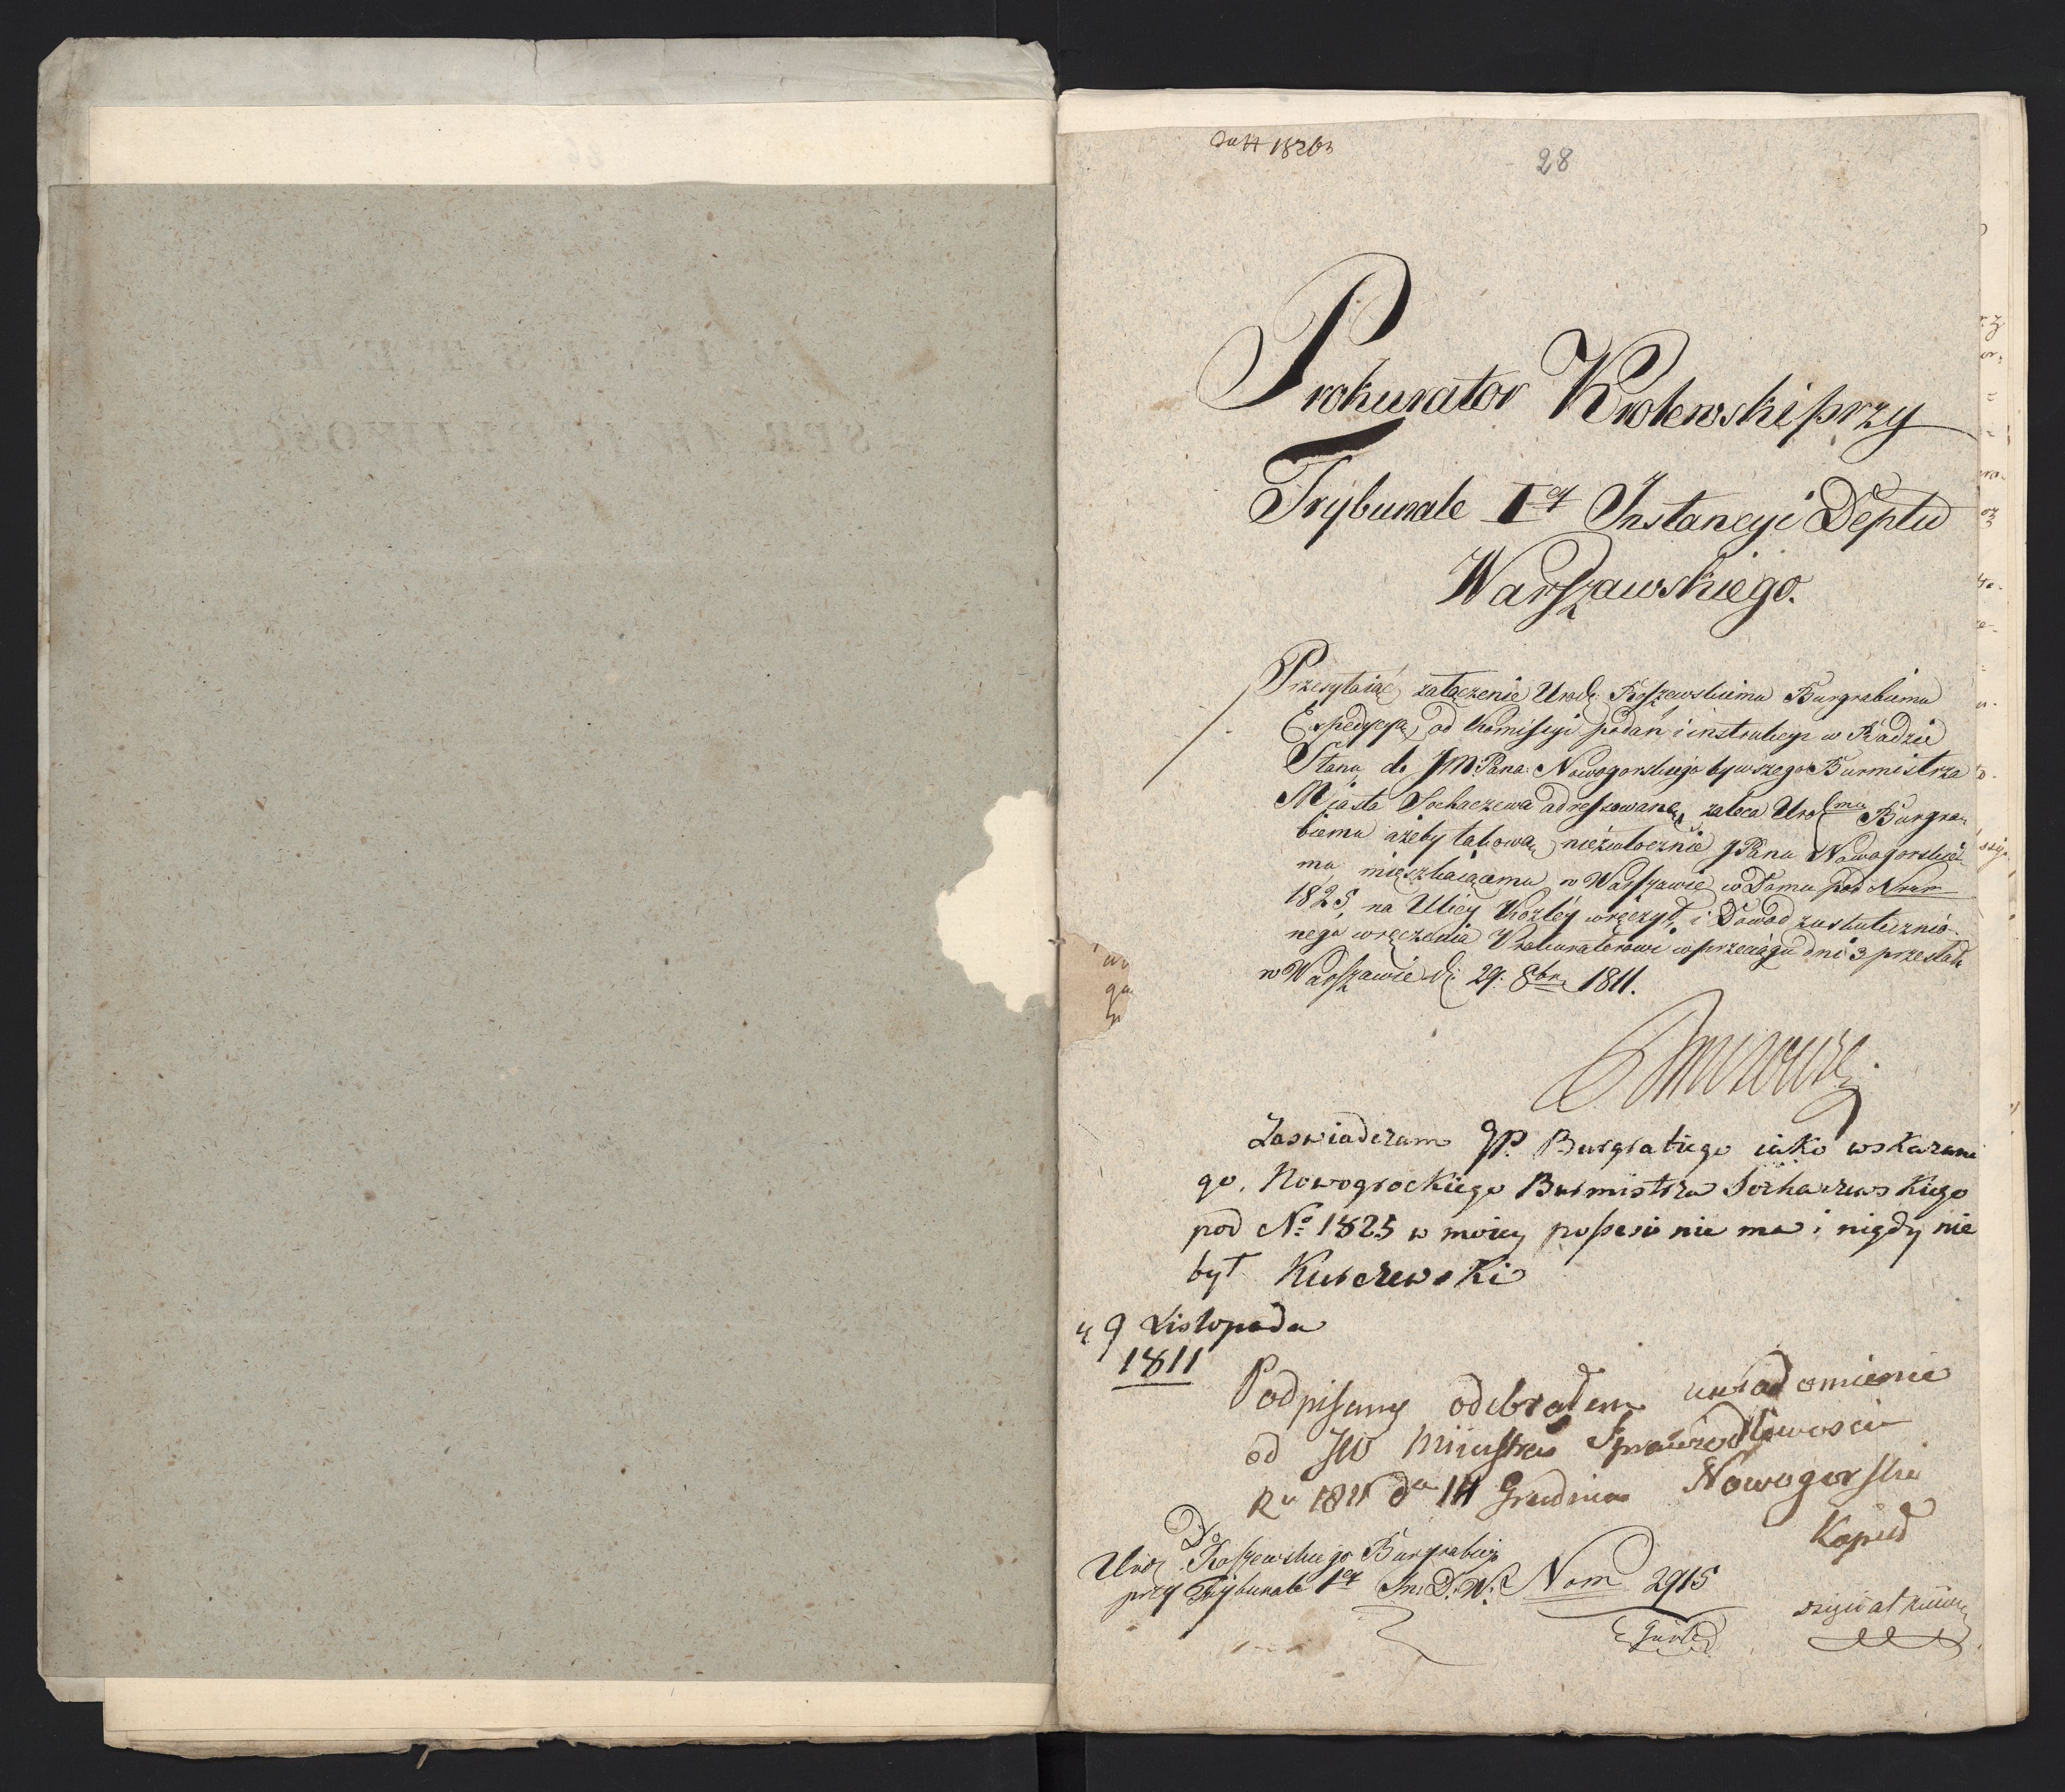 28
Prokurator Krolewski przy
Trybunale Iey Instancyi Deptu
Warszawskiego.
Przesyłaiąc załączenie Urodz: Roszewskiemu Burgrabiemu
Expedycyą od Kommissyi podań i instrukcyi w Radzie
Stanu do JmPana Nowogorskiego bywszego Burmistrza
Miasta Sochaczewa adressowaną, zaleca Urodmu Burgra-
biemu ażeby takową niezwłocznie JPanu Nowogorskie-
mu mieszkaiącemu w Warszawie w Domu pod Nrem
1825, na Ulicy Kozléy wręczył, i Dowod uskutecznio-
nego wręczenia Prokuratorowi w przeciągu dni 3 przesłał
w Warszawie d: 29. 8bra 1811.
Zaswiadczam JP. Burgrabiego iako wskazane
go. Nowogrockiego Burmistrza Sochaczewskiego
pod No 1825 w moiey possesii nie ma i nigdy nie
był Kurczewski
9 Listopada
1811
Podpisany odebrałem uwiadomienie
od JW Ministra Sprawiedliwosci
Ru 1811 da 14 Grudnia Nowogorski
Do
Urodz. Roszewskiego Burgrabiego
przy Trybunale 1ey Ins: D. W. Nom 2915